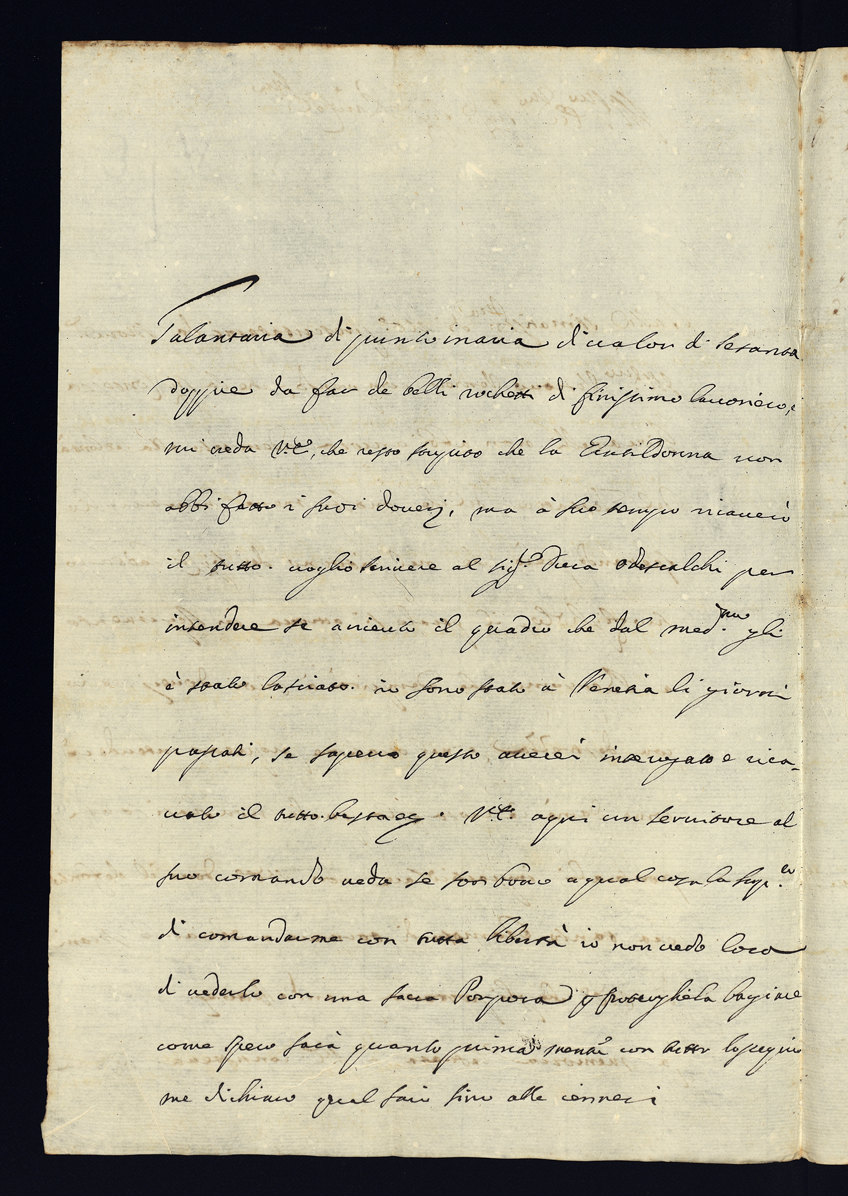 Galantaria di quinto inaria di valor di sesanta
doppie da far de belli rochetti di finissimo lavoriero,
mi creda V.E., che resto stupito che la Gentildonna non
abbi fatto i suoi doveri, ma à suo tempo ricaverò
il tutto. voglio scrivere al Sig.r Duca Odescalchi per
intendere se averà il quadro che dal med.mo gli
è stato lasciato. io sono stato à Venetia li giorni
passati, se sapevo questo averei interogato e rica-
vato il tutto. V.E. à qui un servitore al
suo comando veda se son bono a qual cosa la
di comandarme con tutta libertà io non vedo l'ora
di vederlo con una sacra Porpora
come spero sarà quanto prima mentre con tutto l'ossequio
me dichiaro qual sarò sino alle ceneri